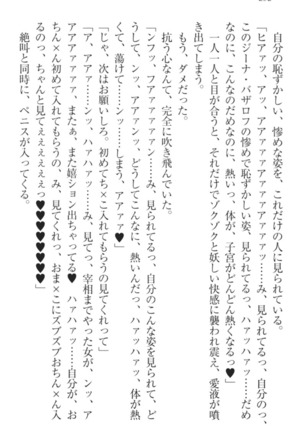 自分の恥ずかしい、惨めな姿を、これだけの人に見られている。
「ヒアァッ、アッ、アァアァアァアァァ……み、見られてるっ、自分の、
このジーナ・バザロフの惨めで恥ずかしい姿、見られてるっ、ハァハァ……だめ
なのに、こんなのだめなのに、熱いっ、体が、子宮がどんどん熱くなるっ♥」
一人一人と目が合うと、それだけでゾクゾクと妖しい快感に襲われ震え、愛液が噴
き出てしまう。
もう、ダメだった。
抗う心なんて、完全に吹き飛んでいた。
「ンフッ、フアァアァアァン……み、見られてるっ、自分のこんな姿を見られて、ど
うして、ンッ、アァァンッ、どうしてこんなに、熱いんだっ、ハァッハァッ、体が熱
くて、蕩けて……ンッ……しまう、アァァァ♥」
「じゃ、次はお願いしろ。初めてち×こ入れてもらうの見てくれって」
「ア、アァァ……ンッ、ハァハァッ……み、見てっ、宰相までやった女が、ンッ、ア
アァアァアァッ、またぁ、また嬉ション出ちゃってる♥　ハァハァッ……自分が、お
ち×ん×ん初めて入れてもらうの、み、見てくれっ、おま×こにズブズブおちん×ん入
るのっ、ちゃんと見てぇぇえぇえぇっ♥♥♥♥♥♥」
絶叫と同時に、ペニスが入ってくる。